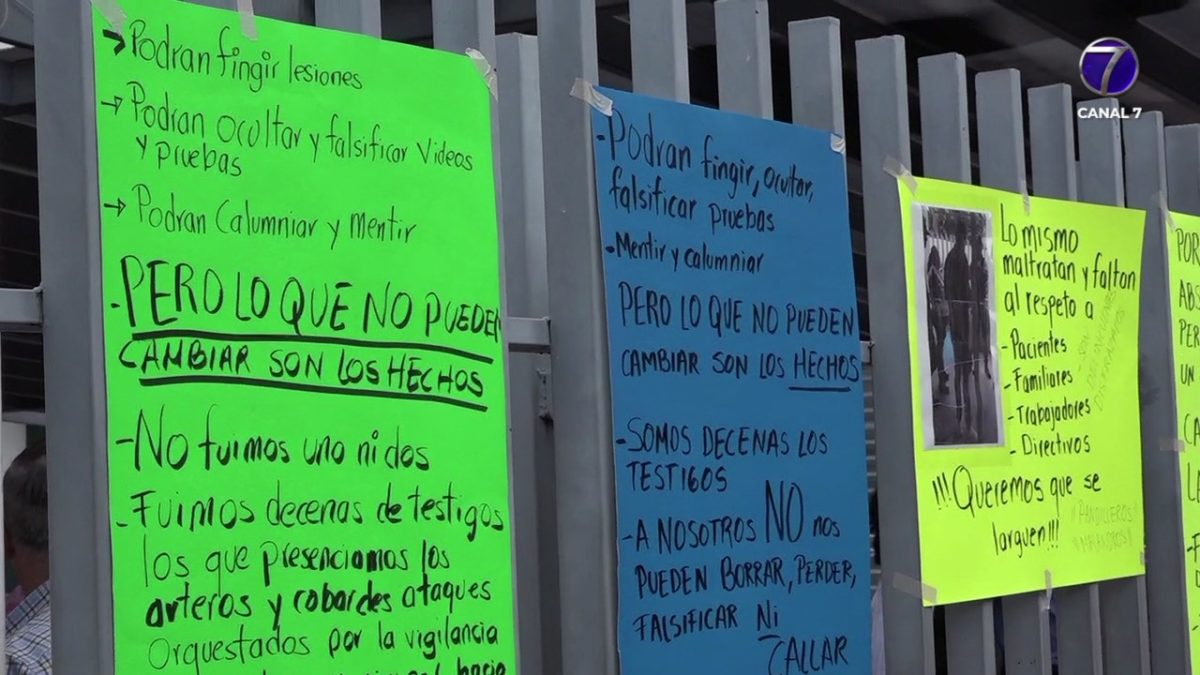 → Podran fingir lesiones
→ Podran ocultar y falsificar Videos
y pruebas
→ Podran Calumniar y Mentir
- PERO LO QUE NO PUEDEN
CAMBIAR SON LOS HECHOS
- No fuimos uno ni dos
- Fuimos decenas de testigos
los que presenciamos los
arteros y cobardes ataques
Orquestados por la vigilancia
hacia
- Podran fingir, ocultar,
falsificar pruebas
- Mentir y calumniar
PERO LO QUE NO PUEDEN
CAMBIAR SON LOS HECHOS
- SOMOS DECENAS LOS
TESTIGOS
- A NOSOTROS NO nos
PUEDEN BORRAR, PERDER,
FALSIFICAR Ni
CALLAR
Lo mismo
maltratan y faltan
al respeto a
- Pacientes
- Familiares
- Trabajadores
- Directivos
!!!Queremos que se
larguen!!!
POR
ABS
PER
UN
CA
7
CANAL 7